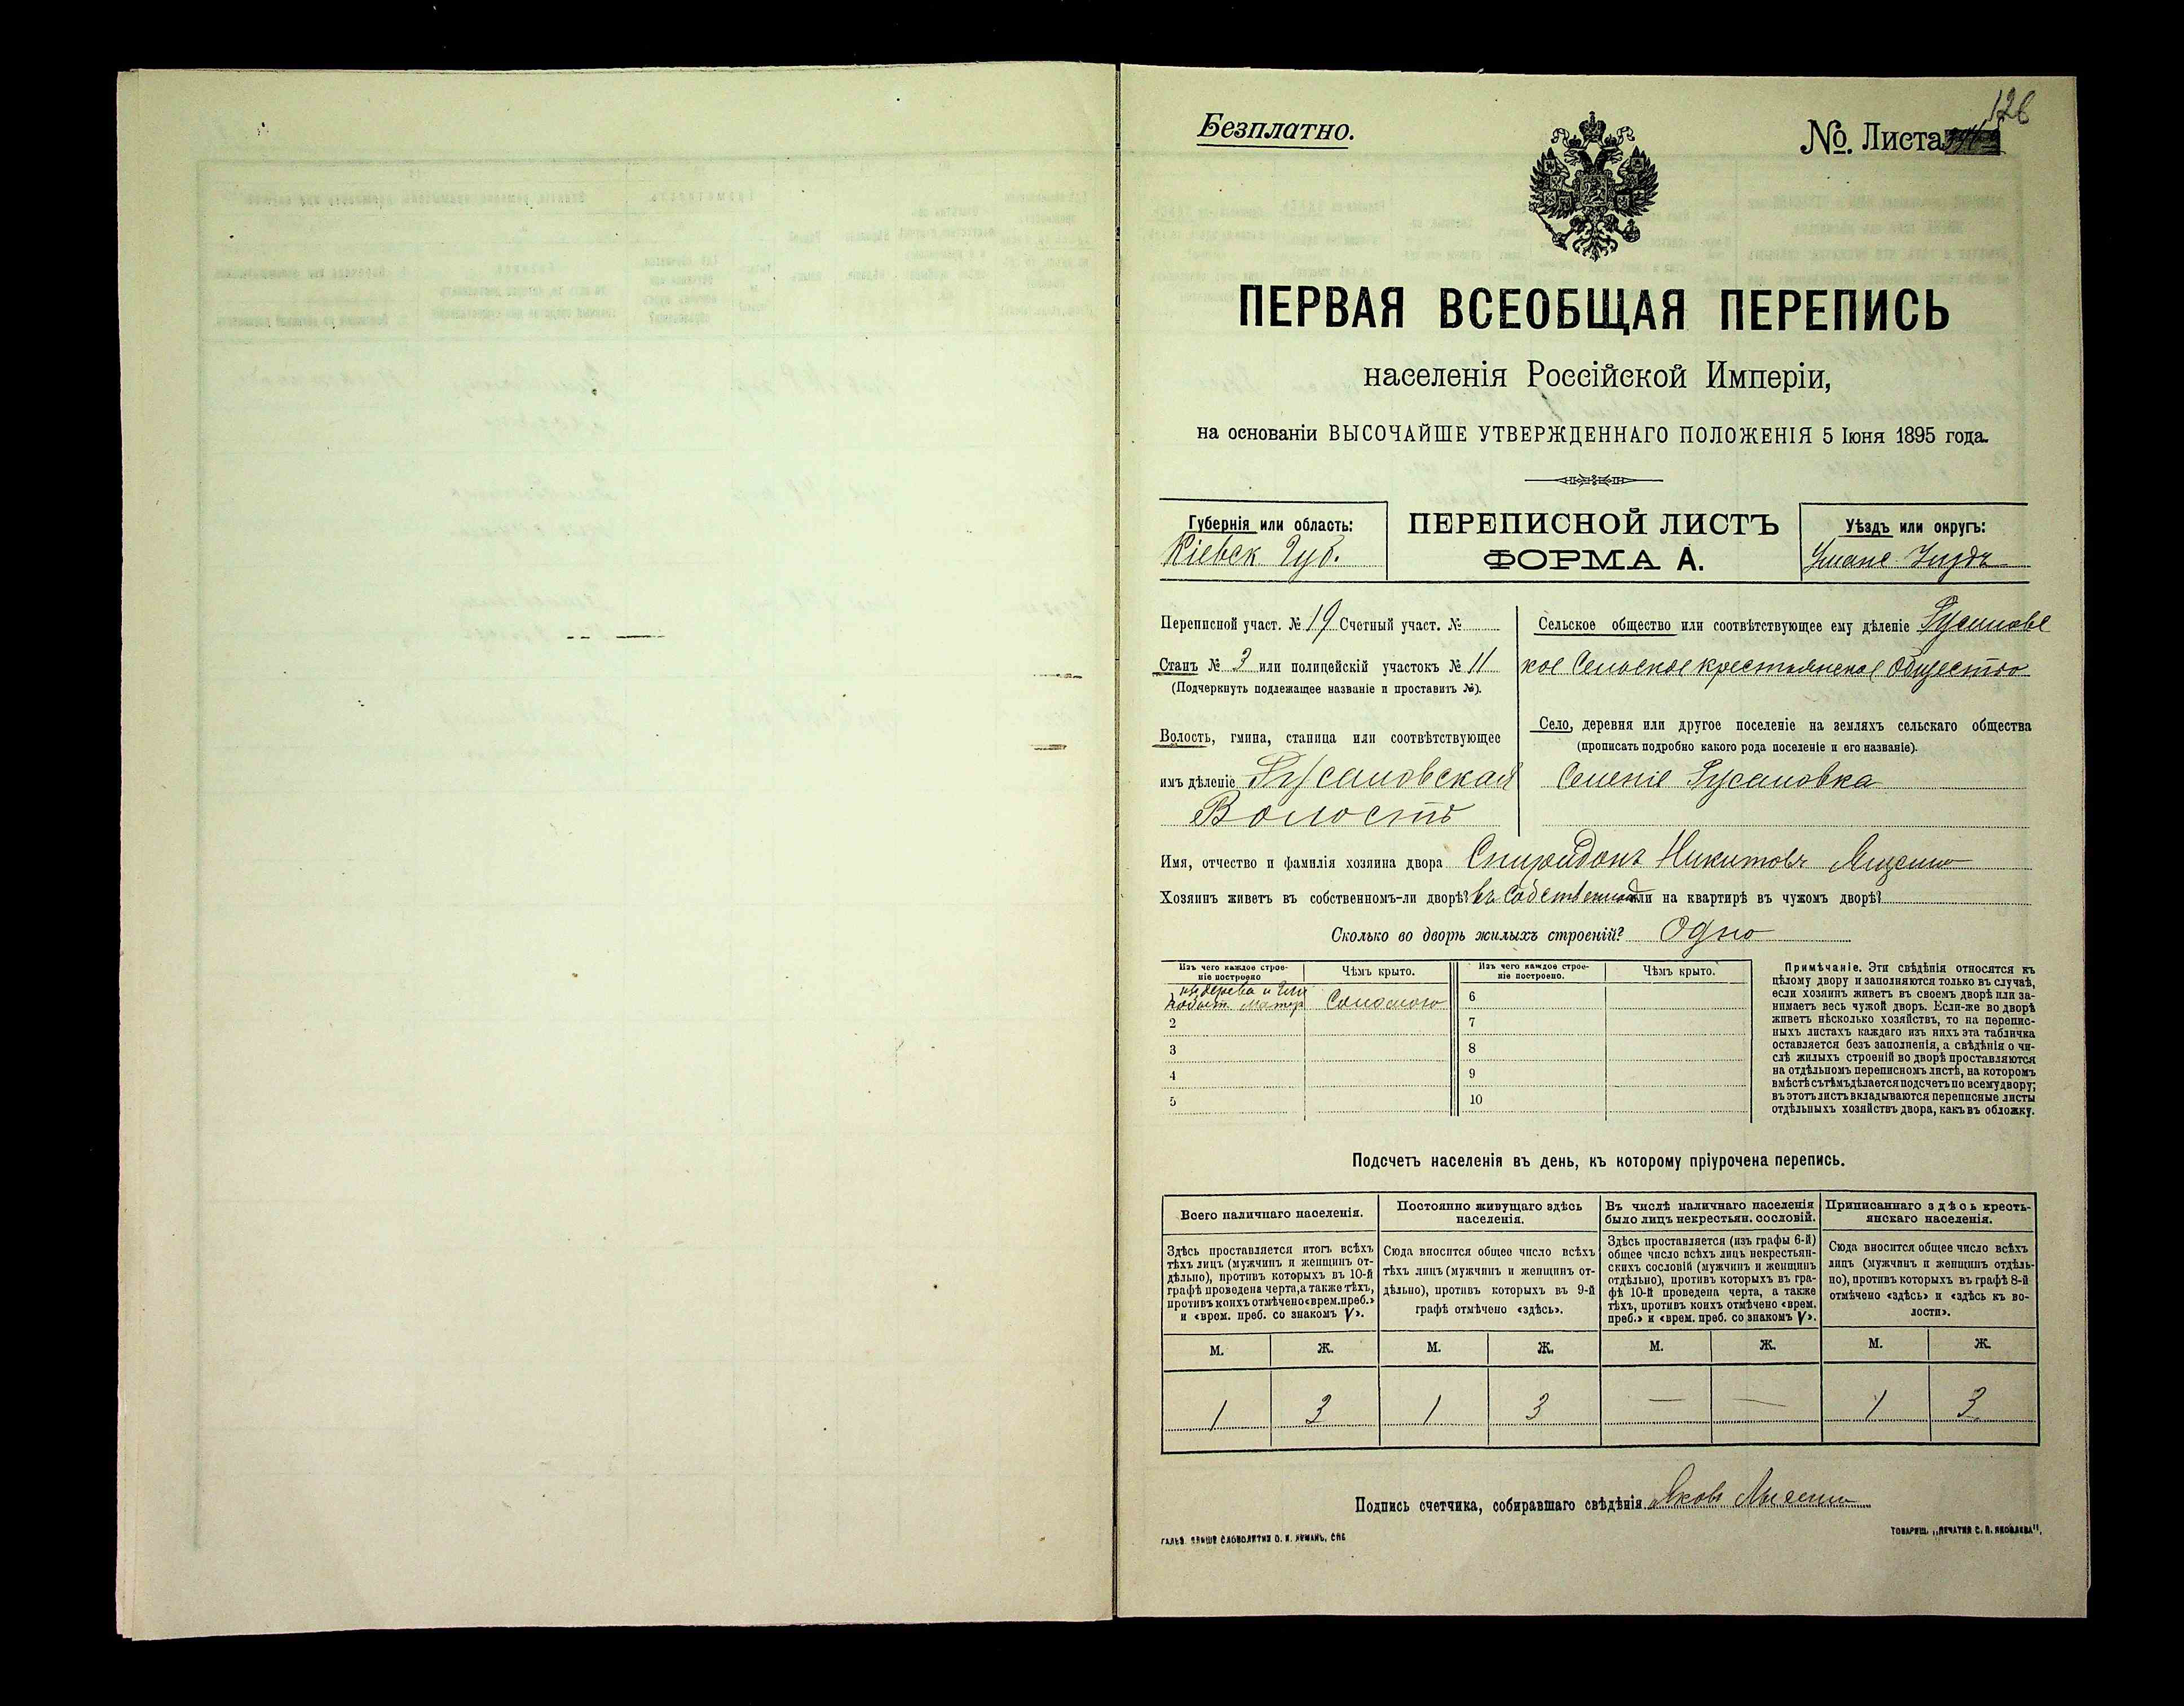 126
Безплатно.
№. Листа
ПЕРВАЯ ВСЕОБЩАЯ ПЕРЕПИСЬ
населенія Россійской Имперіи,
на основаніи ВЫСОЧАЙШЕ УТВЕРЖДЕННАГО ПОЛОЖЕНІЯ 5 Іюня 1895 года.
Губернія или область:
Кіевск Губ.
ПЕРЕПИСНОЙ ЛИСТЪ
ФОРМА А.
Уѣздъ или округъ:
Умане
Переписной участ. № 19 Счетный участ. №
Станъ № 3 или полицейскій участокъ № 11
(Подчеркнуть подлежащее названіе и проставить №).
Волость, гмина, станица или соотвѣтствующее
имъ дѣленіе Русаловская
Волость
Сельское общество или соотвѣтствующее ему дѣленіе
кое Сельское крестьянское Общество
Село, деревня или другое поселеніе на земляхъ сельскаго общества
(прописать подробно какого рода поселеніе и его названіе).
Селеніе Русаловка
Имя, отчество и фамилія хозяина двора Спиридонъ Никитовъ
Хозяинъ живетъ въ собственномъ-ли дворѣ? въ собственном или на квартирѣ въ чужомъ дворѣ?
Сколько во дворѣ жилыхъ строеній? Одно
Изъ чего каждое строе-
ніе построено
Чѣмъ крыто.
Изъ чего каждое строе-
ніе построено.
Чѣмъ крыто.
изъ дерева и
Соломою
6
2
7
3
8
4
9
5
10
Примѣчаніе. Эти свѣдѣнія относятся къ
цѣлому двору и заполняются только въ случаѣ,
если хозяинъ живетъ въ своемъ дворѣ или за-
нимаетъ весь чужой дворъ. Если-же во дворѣ
живетъ нѣсколько хозяйствъ, то на перепис-
ныхъ листахъ каждаго изъ нихъ эта табличка
оставляется безъ заполненія, а свѣдѣнія о чи-
слѣ жилыхъ строеній во дворѣ проставляются
на отдѣльномъ переписномъ листѣ, на которомъ
вмѣстѣ съ тѣмъ дѣлается подсчетъ по всему двору;
въ этотъ листъ вкладываются переписные листы
отдѣльныхъ хозяйствъ двора, какъ въ обложку.
Подсчетъ населенія въ день, къ которому пріурочена перепись.
Всего наличнаго населенія.
Постоянно живущаго здѣсь
населенія.
Въ числѣ наличнаго населенія
было лицъ некрестьян. сословій.
Приписаннаго здѣсь кресть-
янскаго населенія.
Здѣсь проставляется итогъ всѣхъ
тѣхъ лицъ (мужчинъ и женщинъ от-
дѣльно), противъ которыхъ въ 10-й
графѣ проведена черта, а также тѣхъ,
противъ коихъ отмѣчено «врем. преб.»
и «врем. преб. со знакомъ V».
Сюда вносится общее число всѣхъ
тѣхъ лицъ (мужчинъ и женщинъ от-
дѣльно), противъ которыхъ въ 9-й
графѣ отмѣчено «здѣсь».
Здѣсь проставляется (изъ графы 6-й)
общее число всѣхъ лицъ некрестьян-
скихъ сословій (мужчинъ и женщинъ
отдѣльно), противъ которыхъ въ гра-
фѣ 10-й проведена черта, а также
тѣхъ, противъ коихъ отмѣчено «врем.
преб.» и «врем. преб. со знакомъ V».
Сюда вносится общее число всѣхъ
лицъ (мужчинъ и женщинъ отдѣль-
но), противъ которыхъ въ графѣ 8-й
отмѣчено «здѣсь» и «здѣсь къ во-
лости».
М. Ж. М. Ж. М. Ж. М. Ж.
1 3 1 3 — — 1 3
Подпись счетчика, собиравшаго свѣдѣнія Яковъ
СЛОВОЛИТНИ О. И. ЛЕМАНЪ, СПБ
ТОВАРИЩ. „ПЕЧАТНЯ С. П. ЯКОВЛЕВА",